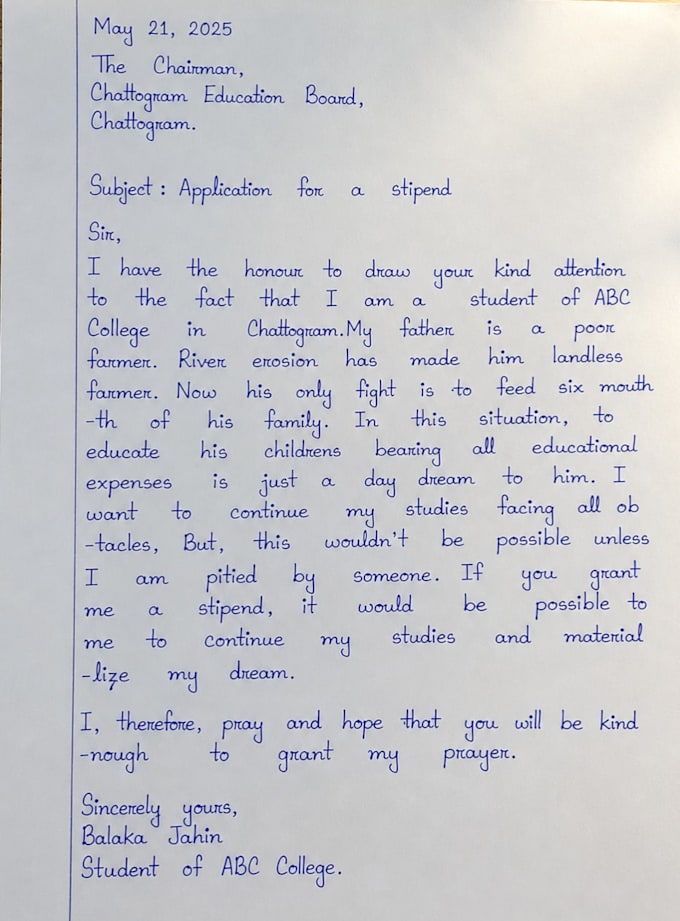 May 21, 2025
The Chairman,
Chattogram Education Board,
Chattogram.
Subject : Application for a stipend
Sir,
I have the honour to draw your kind attention
to the fact that I am a student of ABC
College in Chattogram.My father is a poor
farmer. River erosion has made him landless
farmer. Now his only fight is to feed six mouth
-th of his family. In this situation, to
educate his childrens bearing all educational
expenses is just a day dream to him. I
want to continue my studies facing all ob
-tacles, But, this wouldn't be possible unless
I am pitied by someone. If you grant
me a stipend, it would be possible to
me to continue my studies and material
-lize my dream.
I, therefore, pray and hope that you will be kind
-nough to grant my prayer.
Sincerely yours,
Balaka Jahin
Student of ABC College.